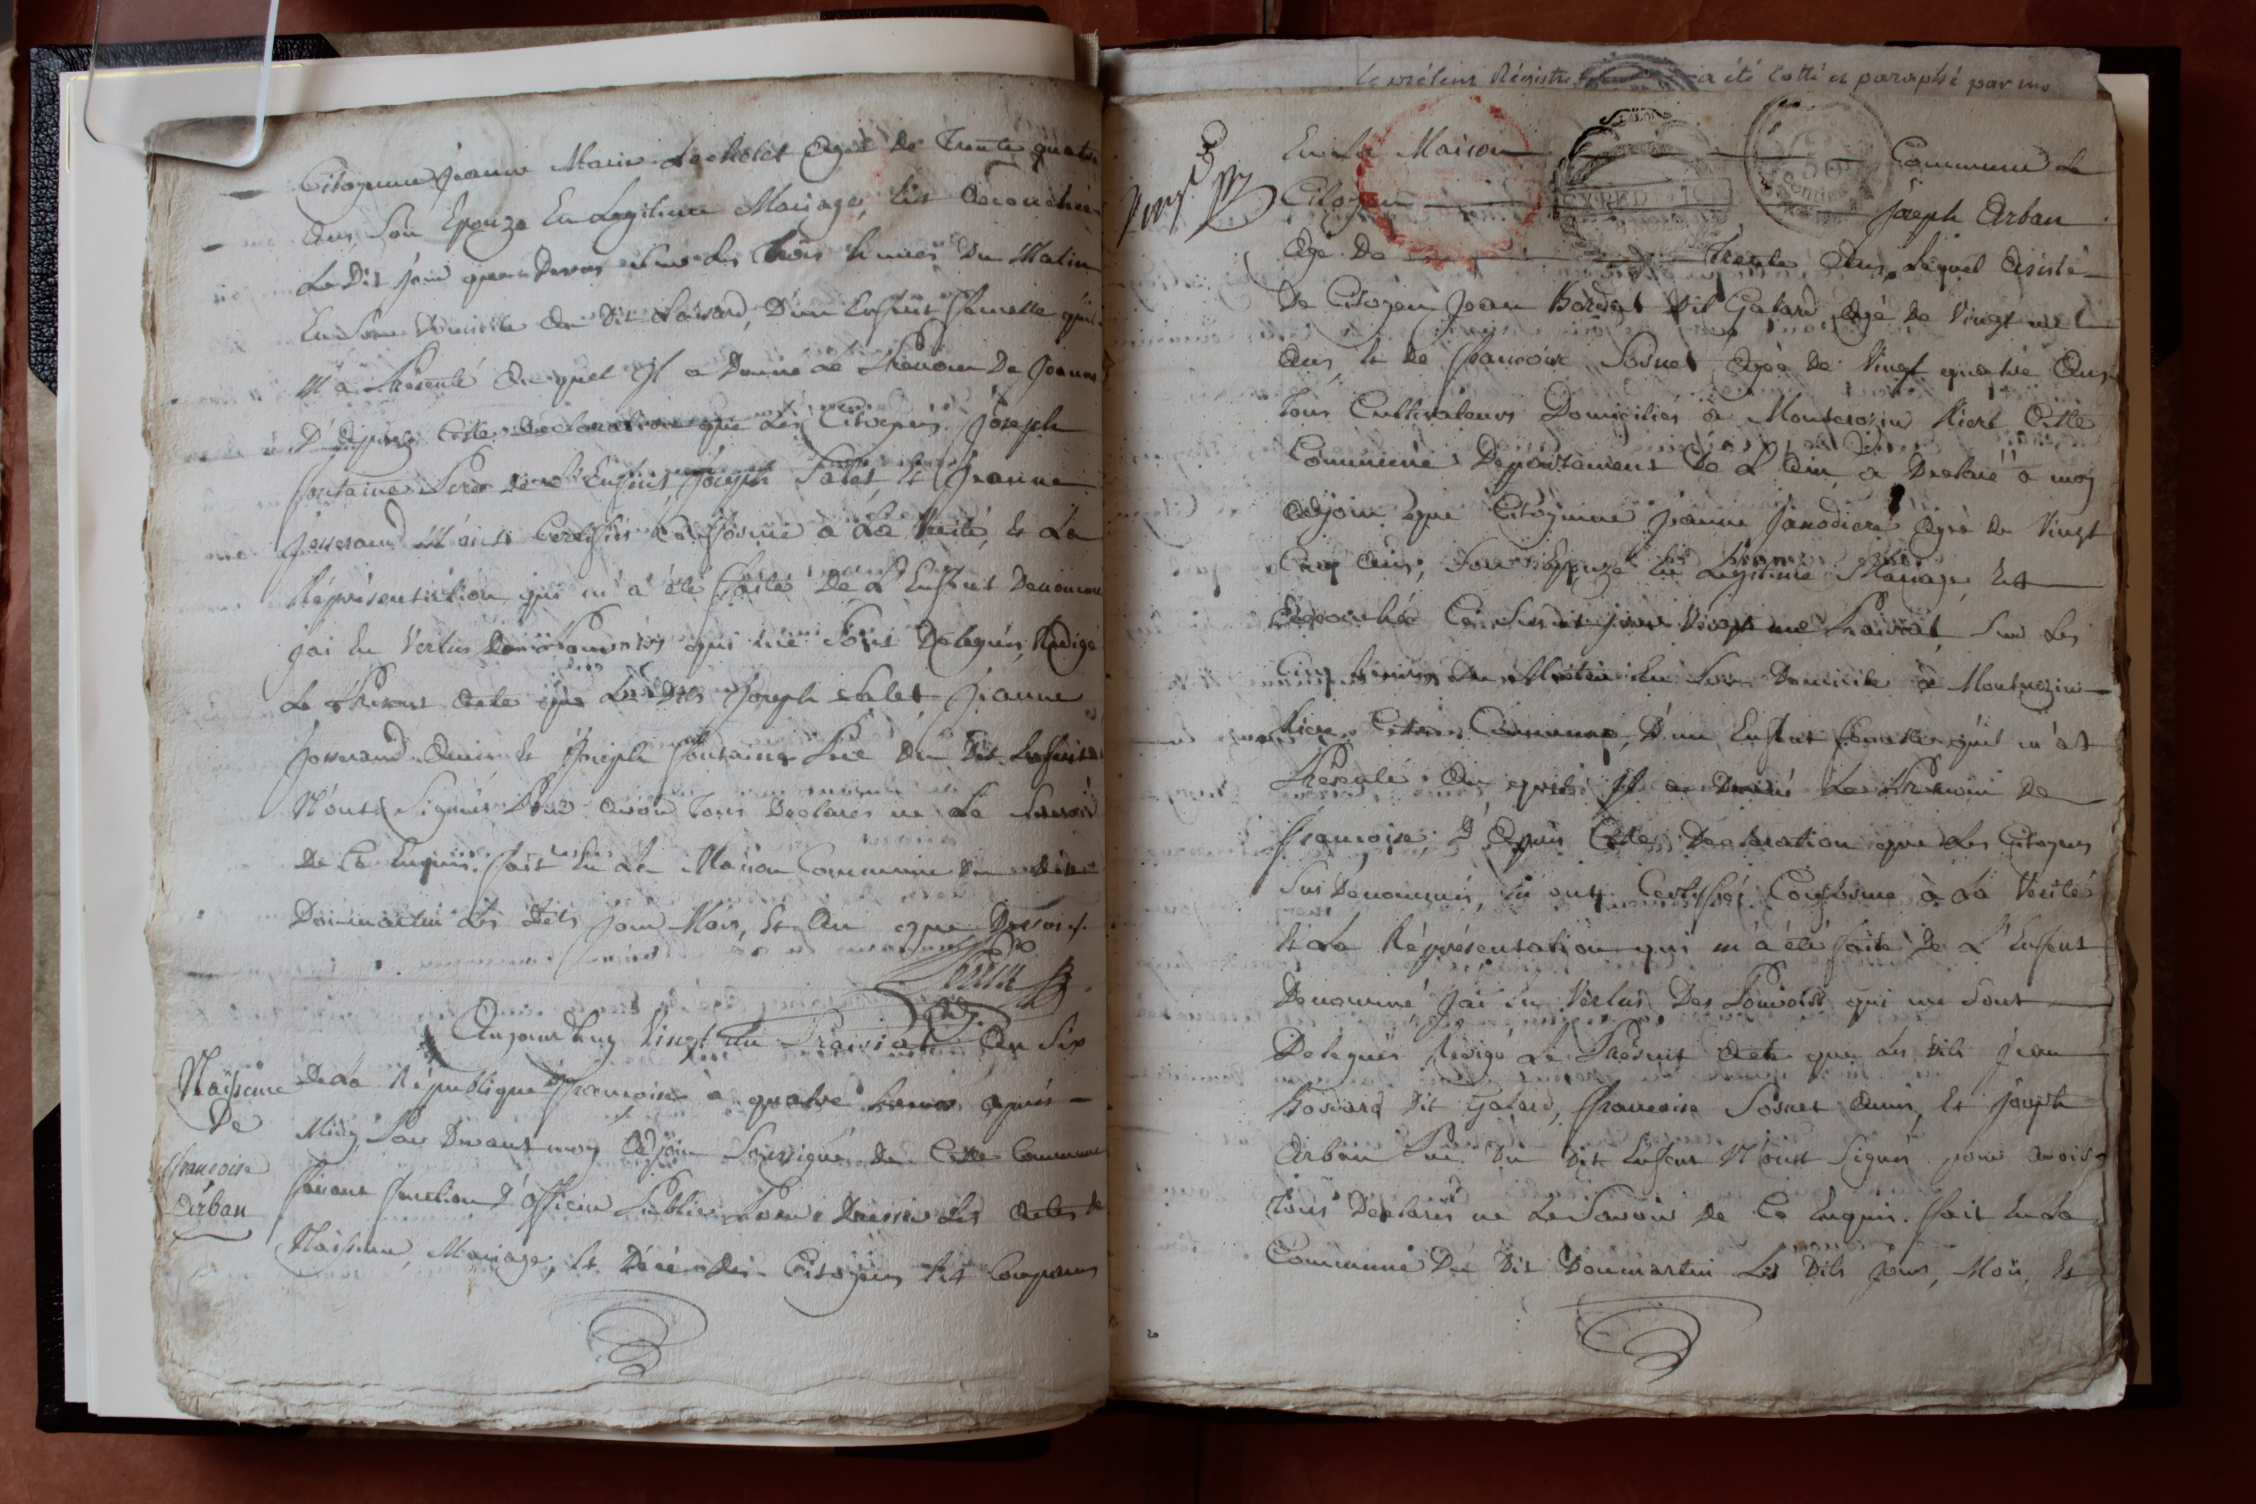 Citoyenne Jeanne Marie Lecholet Agée De Trente quatre
Ans, Son Epouze En Legitime Mariage, Est Acouchée
Le Dit Jour que Devans sur Les Trois heures Du Matin
En Son Domicile Au Dit D'un Enfant femelle qu'il
M'a Présenté Au quel Il a Donné Le Prénom De Jeanne
D'Apprès Cette Declaration que Les Citoyens Joseph
fontaine Père de L'Enfant, Joseph Salet, Et Jeanne
Josserand M'ont Certifiés Conforme a La Vérité, Et La
Réprésentation qui m'a été faite De L'Enfant Denommé
j'ai En Vertus Des Pouvoirs qui me Sont Delegués, Redigé
Le Présent Acte que Les Dits Joseph Salet Jeanne
Josserand Amis Et Joseph fontaine Père Du Dit Enfant
N'ont Signés Pour avoir Tous Declarés ne Le Savoir
De Ce Enquis. fait En La Maison Commune Du dit
Donmartin Les Dits Jour Mois, Et An que Dessus.
Aujourd'huy Vingt un Prairial An Six
Naissance
De
françoise
Arban
De La République françoise à quatre heures après
Midy Par Devant moy Adjoin Soussigné De Cette Commune
faisant fonction D'Officier Public Pour Dresser Les Actes De
Naissance, Mariage, Et Décé Des Citoyens Est Comparus
le présent Régistre a été Cotté et paraphé par
En La Maison Commune Le
Citoyen Joseph Arban
Agé De Trente Ans, Lequel Assisté
De Citoyen Jean Dit Galard Agé De Vingt
Ans, Et De françoise Sosnet Agée De Vingt quatre Ans
Tous Cultivateurs Domiciliés à Montcrozin Riere Cette
Commune Departement De L'Ain, a Declaré à moy
Adjoin que Citoyenne Jeanne Janodiere Agée De Vingt
Cinq Ans, Son Epouze En Légitime Mariage, Est
Accouchée Ce Susdit jour Vingt un Prairial, Sur Les
Cinq heures Du Matin En Son Domicile à Montcrozin
Riere Cette Commune, D'un Enfant femelle qu'il m'at
Présenté Au quel Il a Donné Le Prénom De
françoise, D'Après Cette Declaration que Les Citoyens
Sus Dénommés, m'ont Certifiés Conforme à La Vérité
Et La Réprésentation qui m'a été faite De L'Enfant
Denommé, J'ai En Vertus Des Pouvoirs qui me Sont
Delegués Rédigé Le Présent Acte que Les Dits Jean
Dit Galard, françoise Sosnet Amis, Et Joseph
Arban Père Du Dit Enfant N'ont Signés pour avoir
Tous Declarés ne Le Savoir De Ce Enquis. fait En La
Commune Du Dit Donmartin Les Dits Jour, Mois, Et